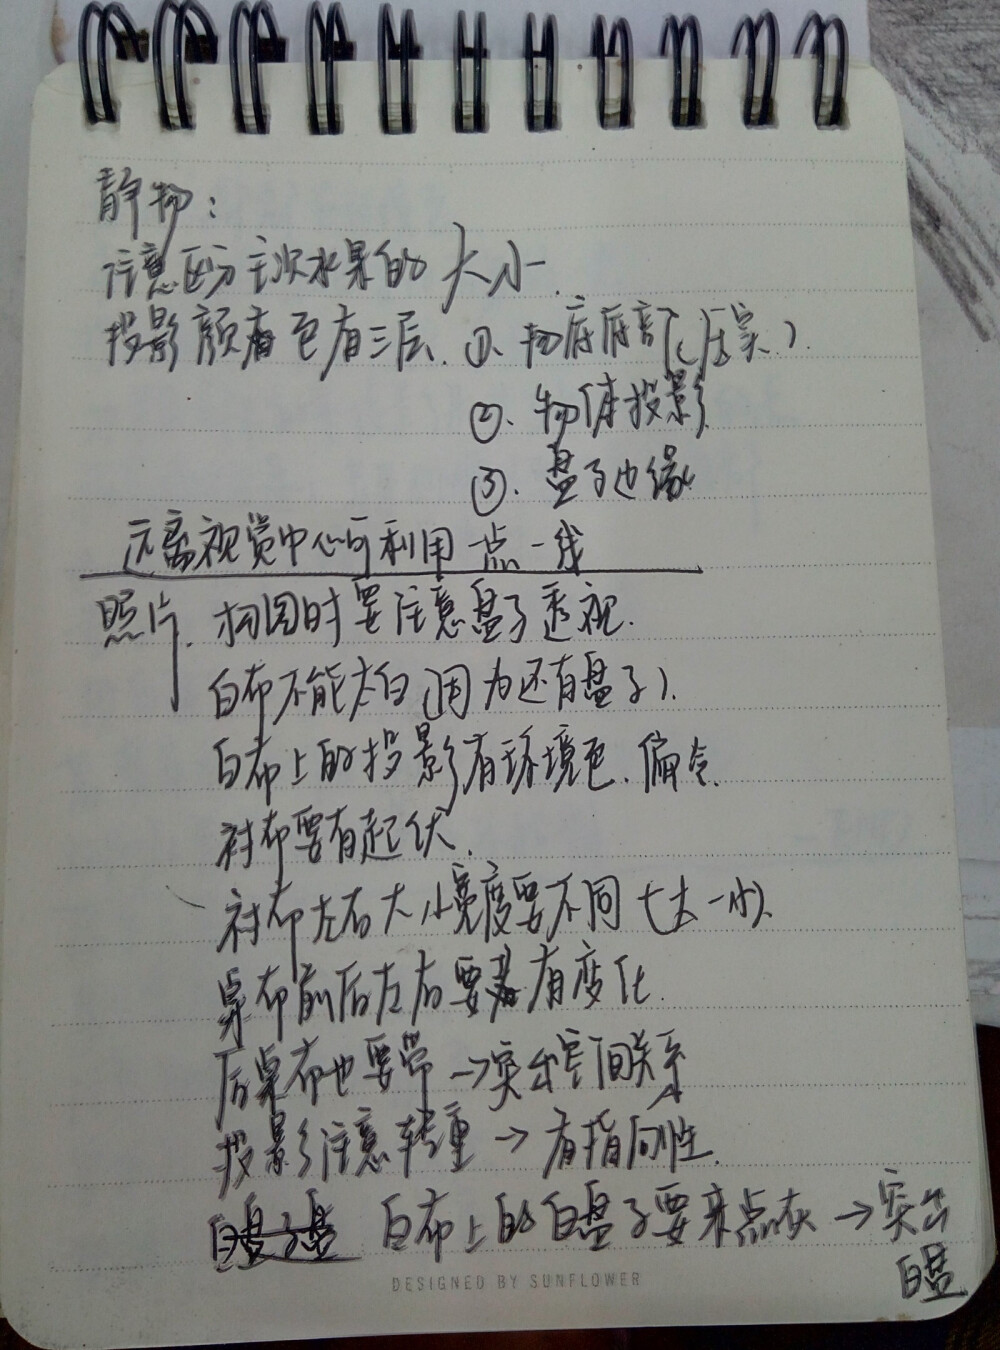 静物：
注意区分主次水果的大小.
投影颜色有三层. ①. 物底底部（压实.）
②. 物体投影
③. 盘子边缘
远离视觉中心可利用一点一线
照片. 构图时要注意盘子透视.
白布不能太白（因为还有盘子）.
白布上的投影有环境色. 偏冷.
衬布要有起伏.
衬布左右大小宽度要不同（大一小）.
桌布前后左右要有变化.
后桌布也要带→突出空间关系
投影注意转重→有指向性.
白布上的白盘子要来点灰→突出
白盘
DESIGNED BY SUNFLOWER